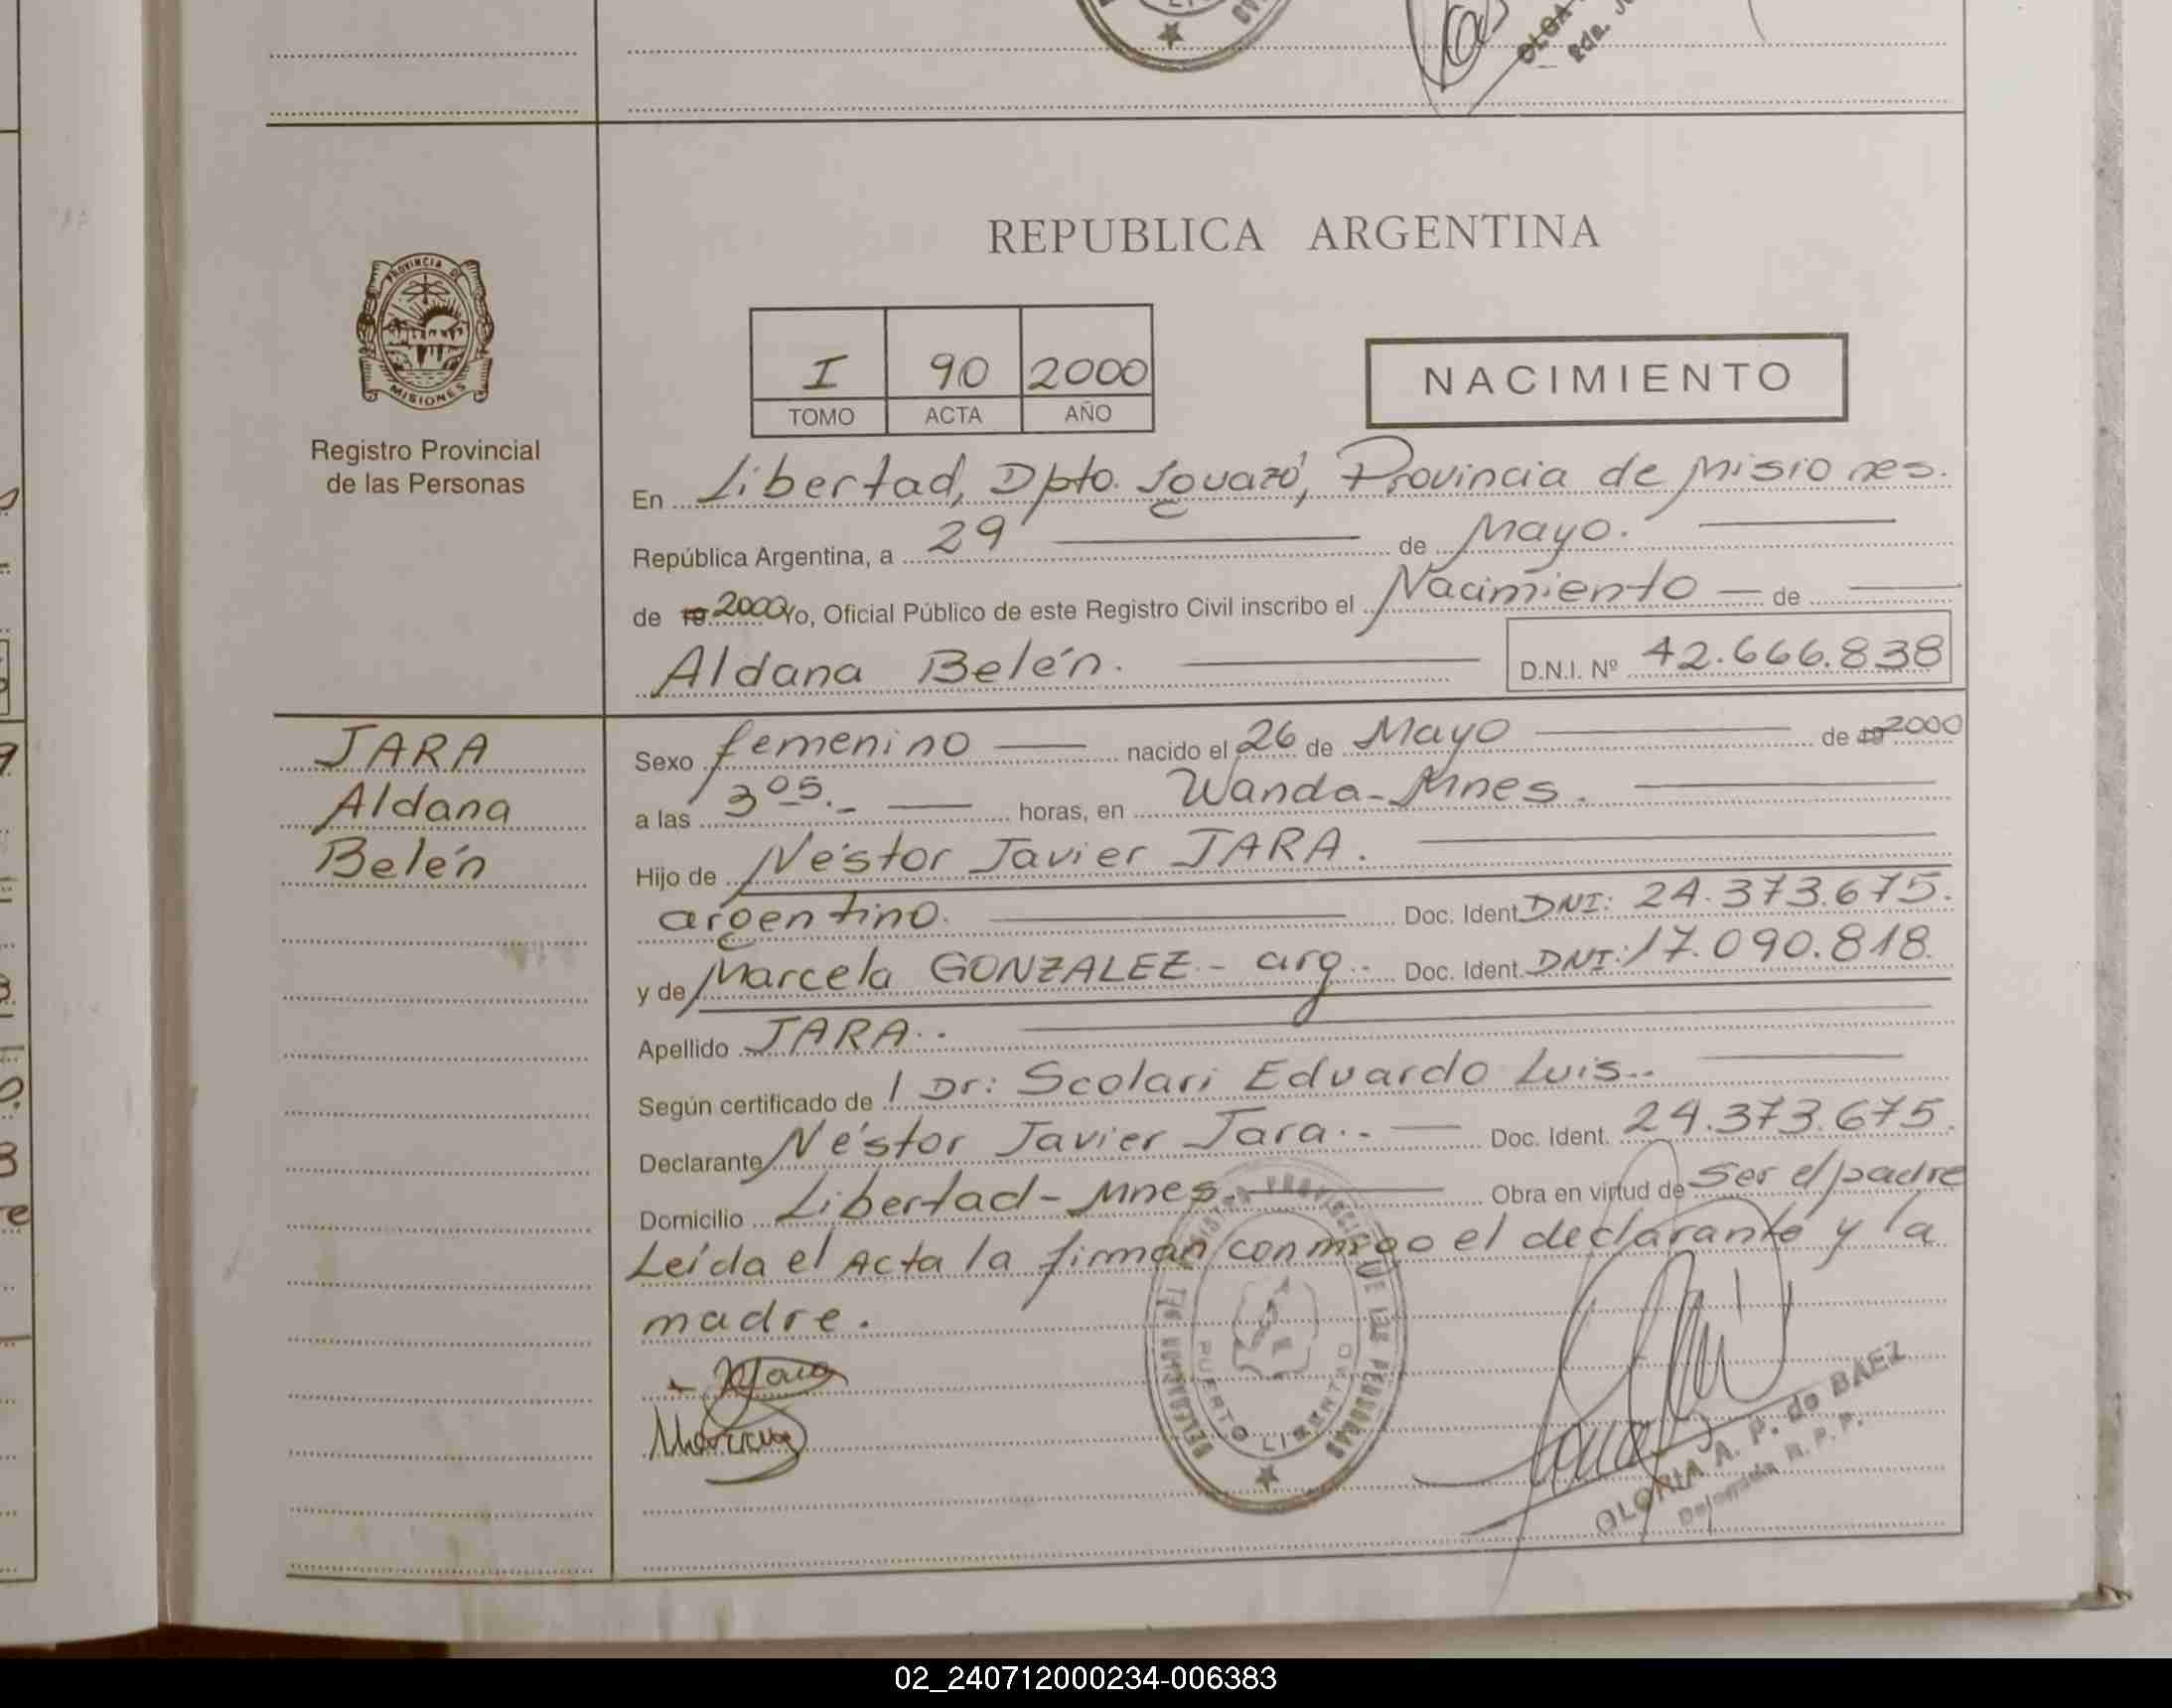 REPUBLICA ARGENTINA
PROVINCIA DE
MISIONES
Registro Provincial
de las Personas
I 90 2000
TOMO ACTA AÑO
NACIMIENTO
En Libertad, Dpto. Iguazú, Provincia de Misiones.
República Argentina, a 29 de Mayo.
de 19 2000 Yo, Oficial Público de este Registro Civil inscribo el Nacimiento de
Aldana Belén. D.N.I. Nº 42.666.838
JARA
Aldana
Belén
Sexo femenino nacido el 26 de Mayo de 19 2000
a las 3 05. horas, en Wanda-Mnes.
Hijo de Néstor Javier JARA.
argentino. Doc. Ident. DNI: 24.373.675.
y de Marcela GONZALEZ - arg. Doc. Ident. DNI: 17.090.818.
Apellido JARA..
Según certificado de l Dr: Scolari Eduardo Luis..
Declarante Néstor Javier Jara.. Doc. Ident. 24.373.675.
Domicilio Libertad - Mnes. Obra en virtud de Ser el padre
Leída el Acta la firman conmigo el declarante y la
madre.
PUERTO LIBERTAD
GLORIA A. P. de BAEZ
Delegada R. P. P.
02_240712000234-006383